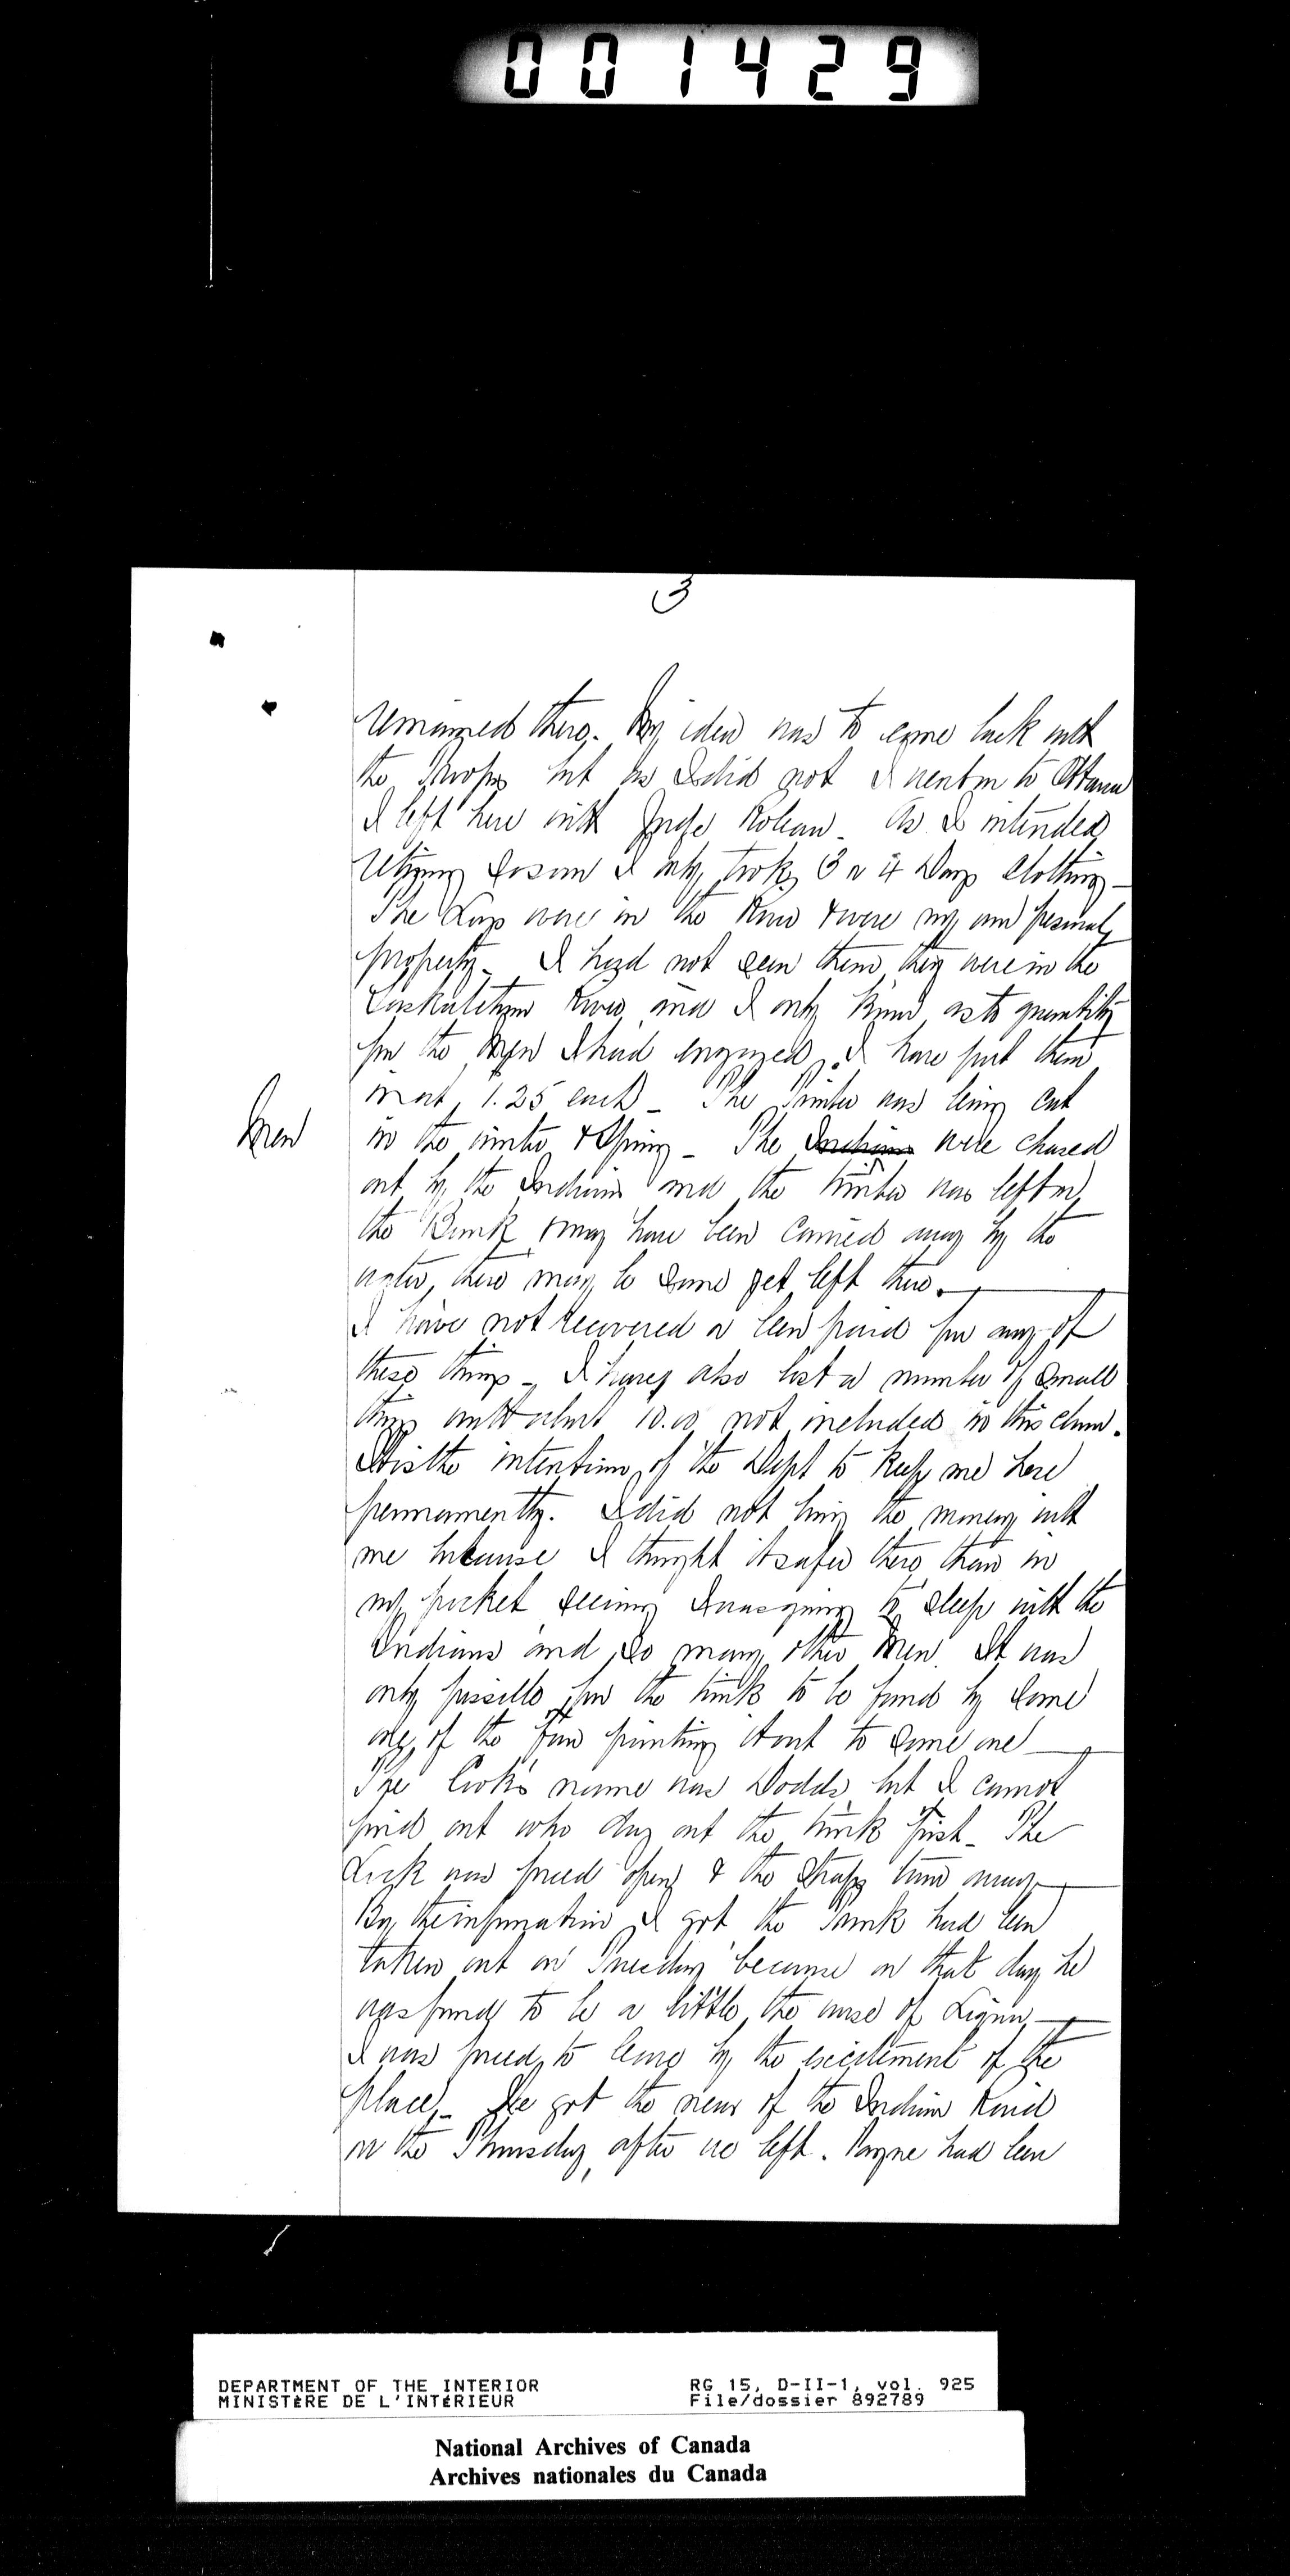 001429
3
remained there. My idea was to come back with
the troops but as I did not I went on to Ottawa
I left here with Judge Rolleau. As I intended
retiring soon I only took 3 or 4 Days Clothing —
The Logs were in the River & were my own personal
property. I had not seen them they were in the
Saskatchewan River and I only know as to quantity
from the Men I had engaged. I have put them
in at 1.25 each — The Timber was being cut
Men
in the winter & Spring — The Indians were chased
out by the Indians and the timber was left on
the Bank & may have been carried away by the
water, there may be some yet left there.
I have not recovered or been paid for any of
these things — I have also lost a number of small
things worth about 10.00 not included in this claim.
It is the intention of the Dept to keep me here
permanently. I did not bring the money with
me because I thought it safer there than in
my pocket seeing I was going to sleep with the
Indians and so many other Men. It was
only possible for the trunk to be found by some
one of the few pointing it out to some one —
The Cook's name was Dodds but I cannot
find out who dug out the trunk first — The
Lock was forced open & the straps torn away —
By the information I got the Trunk had been
taken out on Tuesday because on that day he
was found to be a little the worse of Liquor —
I was forced to leave by the excitement of the
place — We got the news of the Indian Raid
on the Thursday, after we left. Payne had been
DEPARTMENT OF THE INTERIOR
MINISTÈRE DE L'INTÉRIEUR
RG 15, D-II-1, vol. 925
File/dossier 892789
National Archives of Canada
Archives nationales du Canada